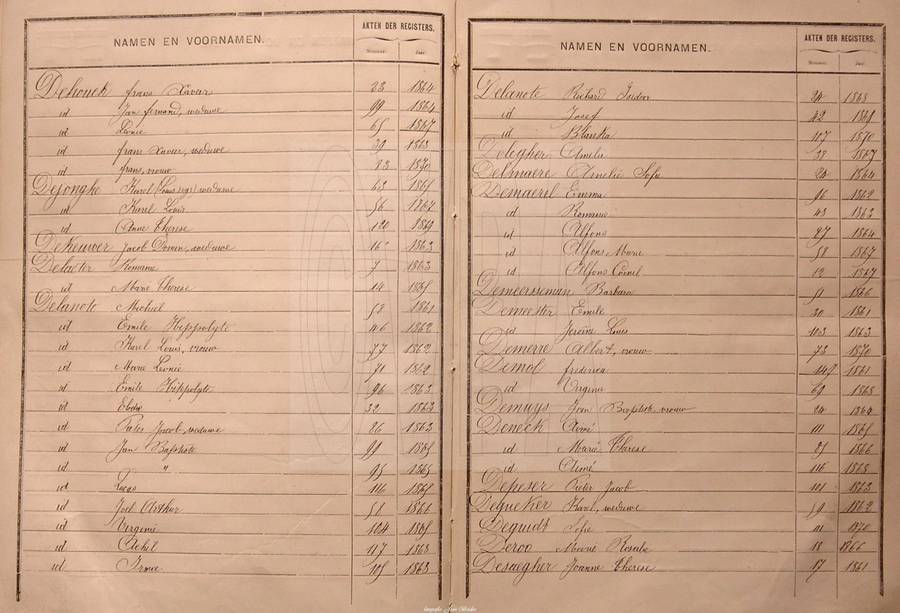 NAMEN EN VOORNAMEN.
AKTEN DER REGISTERS.
Nummer. Jaar.
Dehouck frans Xavier 22 1864
id Jan fernand, weduwe 99 1864
id Leonie 65 1867
id frans Xavier, weduwe 39 1863
id frans, vrouw 83 1870
Dejonghe Karel Louis, weduwe 63 1861
id Karel Louis 56 1867
id Anne Therese 120 1869
Dekeuwer Jacob, weduwe 162 1863
Delaeter Romanie 7 1863
id Marie Therese 14 1865
Delanote Michiel 53 1861
id Emile Hippolyte 46 1862
id Karel Louis, vrouw 77 1862
id Marie Leonie 71 1862
id Emile Hippolyte 96 1863
id Elodie 32 1863
id Pieter Jacob, weduwe 86 1863
id Jan Baptiste 99 1865
id " 95 1865
id Lucas 116 1865
id Joel Arthur 58 1866
id Virgenie 104 1868
id Achil 117 1868
id Irmee 105 1863
NAMEN EN VOORNAMEN.
AKTEN DER REGISTERS.
Nummer. Jaar.
Delanote Richard Isidoor 24 1868
id Josef 42 1869
id Blanka 107 1870
Delegher Amelie 38 1867
Delmaere Amelie Sofie 24 1864
Demaerel Emma 56 1862
id Romanie 43 1863
id Alfons 27 1864
id Alfons Marie 58 1867
id Alfons Cornel 12 1867
Demeersseman Barbara 51 1866
Demeester Emile 30 1861
id Jerome Louis 103 1863
Demerre Albert, vrouw 73 1870
Demol frederica 149 1861
id Virginie 69 1868
Demuys Jean Baptist, vrouw 24 1864
Deneck Aimé 111 1865
id Marie Therese 25 1866
id Aimé 116 1868
Depeser Pieter Jacob 101 1863
Dequeker Karel, weduwe 59 1862
Dequidt Sofie 111 1870
Deroo Marie Rosalie 18 1866
Desaegher Joanne Therese 17 1861